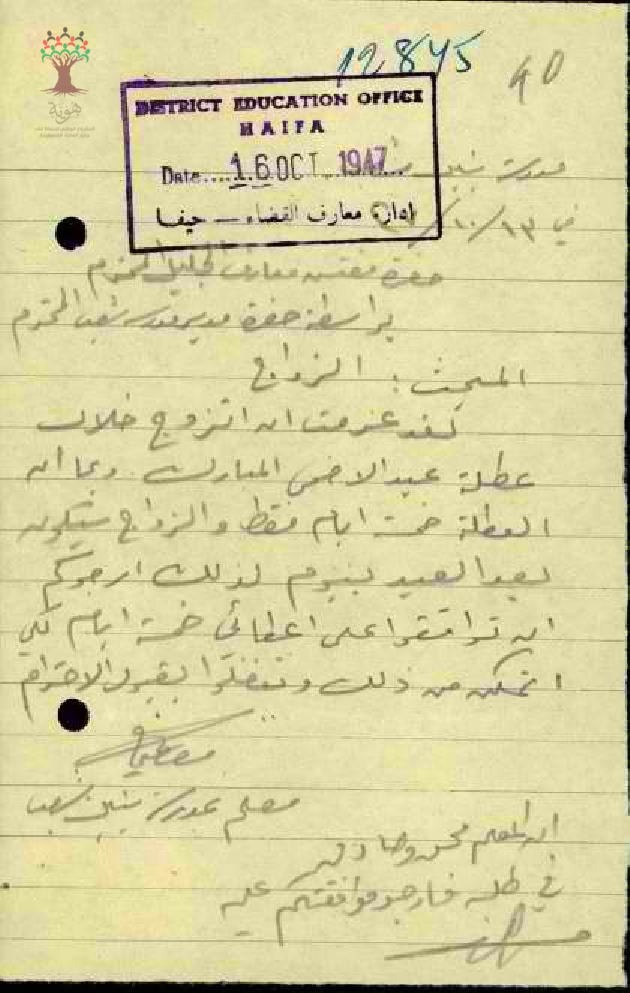 12845
40
هوية
DISTRICT EDUCATION OFFICE
HAIFA
Date.... 16 OCT 1947...
إدارة معارف القضاء — حيفا
مدرسة بنين
في ١٣/١٠/
حضرة مفتش معارف الجليل المحترم
بواسطة حضرة مدير مدرسة شعب المحترم
المبحث: الزواج
لقد عزمت ان اتزوج خلال
عطلة عيد الاضحى المبارك. وبما ان
العطلة خمسة ايام فقط والزواج سيكون
بعد العيد بيوم لذلك ارجوكم
ان توافقوا على اعطائي خمسة ايام لكي
اتمكن من ذلك وتفضلوا بقبول الاحترام
معلم بمدرسة بنين شعب
ان المعلم محق وصادق
في طلبه فارجو موافقتكم عليه